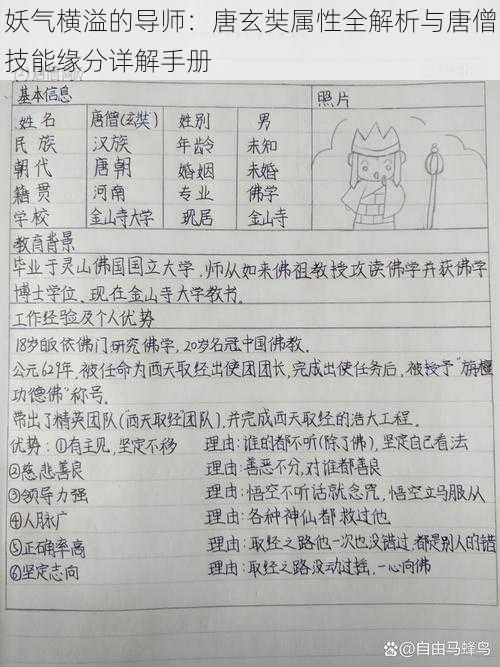 妖气横溢的导师：唐玄奘属性全解析与唐僧
技能缘分详解手册
基本信息 照片
姓名 唐僧(玄奘) 姓别 男
民族 汉族 年龄 未知
朝代 唐朝 婚姻 未婚
籍贯 河南 专业 佛学
学校 金山寺大学 现居 金山寺
教育背景
毕业于灵山佛国国立大学，师从如来佛祖教授攻读佛学并获佛学
博士学位、现在金山寺大学教书.
工作经验及个人优势
18岁皈依佛门研究佛学，20岁名冠中国佛教.
公元629年，被任命为西天取经出使团团长，完成出使任务后，被授予"旃檀
功德佛"称号.
带出了精英团队(西天取经团队)，并完成西天取经的浩大工程.
优势：①有主见，坚定不移 理由：谁的都不听(除了佛)，坚定自己看法
②慈悲善良 理由：善恶不分，对谁都善良
③领导力强 理由：悟空不听话就念咒，悟空立马服从
④人脉广 理由：各种神仙都救过他
⑤正确率高 理由：取经之路他一次也没错过，都是别人的错
⑥坚定志向 理由：取经之路没动过摇，一心向佛
@自由马蜂鸟